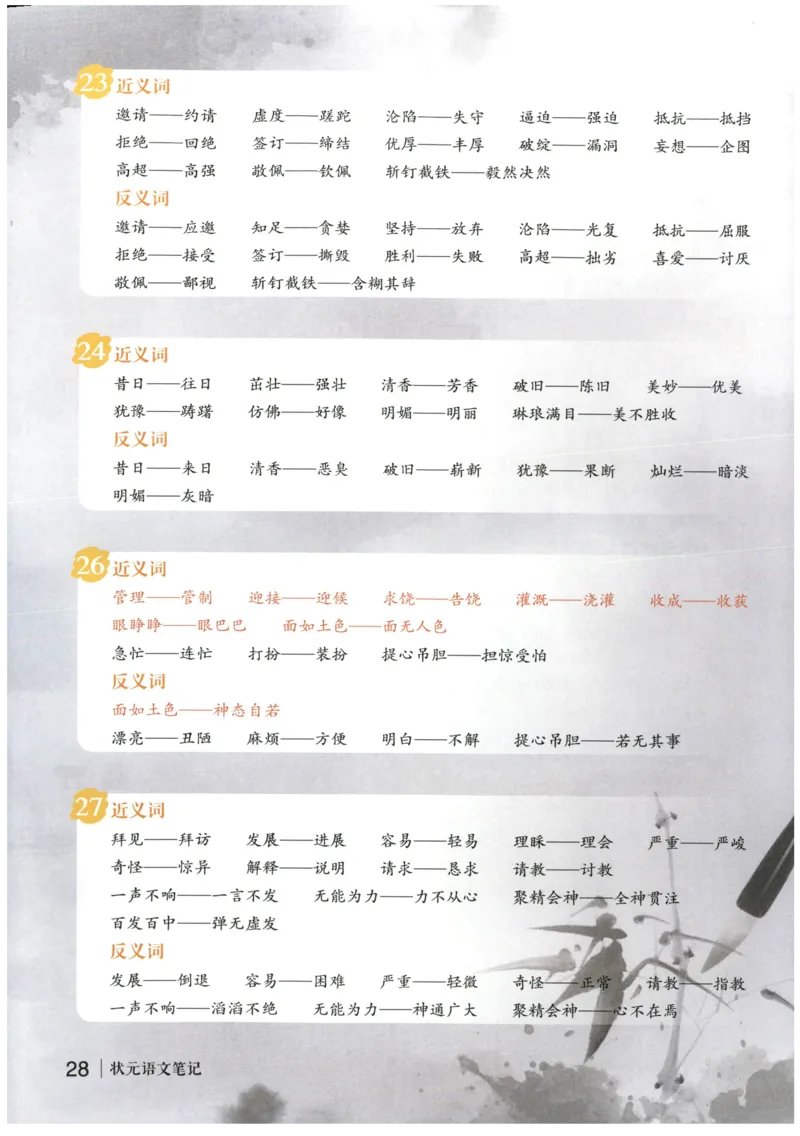 23 近义词
邀请——约请 虚度——蹉跎 沦陷——失守 逼迫——强迫 抵抗——抵挡
拒绝——回绝 签订——缔结 优厚——丰厚 破绽——漏洞 妄想——企图
高超——高强 敬佩——钦佩 斩钉截铁——毅然决然
反义词
邀请——应邀 知足——贪婪 坚持——放弃 沦陷——光复 抵抗——屈服
拒绝——接受 签订——撕毁 胜利——失败 高超——拙劣 喜爱——讨厌
敬佩——鄙视 斩钉截铁——含糊其辞
24 近义词
昔日——往日 茁壮——强壮 清香——芳香 破旧——陈旧 美妙——优美
犹豫——踌躇 仿佛——好像 明媚——明丽 琳琅满目——美不胜收
反义词
昔日——来日 清香——恶臭 破旧——崭新 犹豫——果断 灿烂——暗淡
明媚——灰暗
26 近义词
管理——管制 迎接——迎候 求饶——告饶 灌溉——浇灌 收成——收获
眼睁睁——眼巴巴 面如土色——面无人色
急忙——连忙 打扮——装扮 提心吊胆——担惊受怕
反义词
面如土色——神态自若
漂亮——丑陋 麻烦——方便 明白——不解 提心吊胆——若无其事
27 近义词
拜见——拜访 发展——进展 容易——轻易 理睬——理会 严重——严峻
奇怪——惊异 解释——说明 请求——恳求 请教——讨教
一声不响——一言不发 无能为力——力不从心 聚精会神——全神贯注
百发百中——弹无虚发
反义词
发展——倒退 容易——困难 严重——轻微 奇怪——正常 请教——指教
一声不响——滔滔不绝 无能为力——神通广大 聚精会神——心不在焉
28 | 状元语文笔记